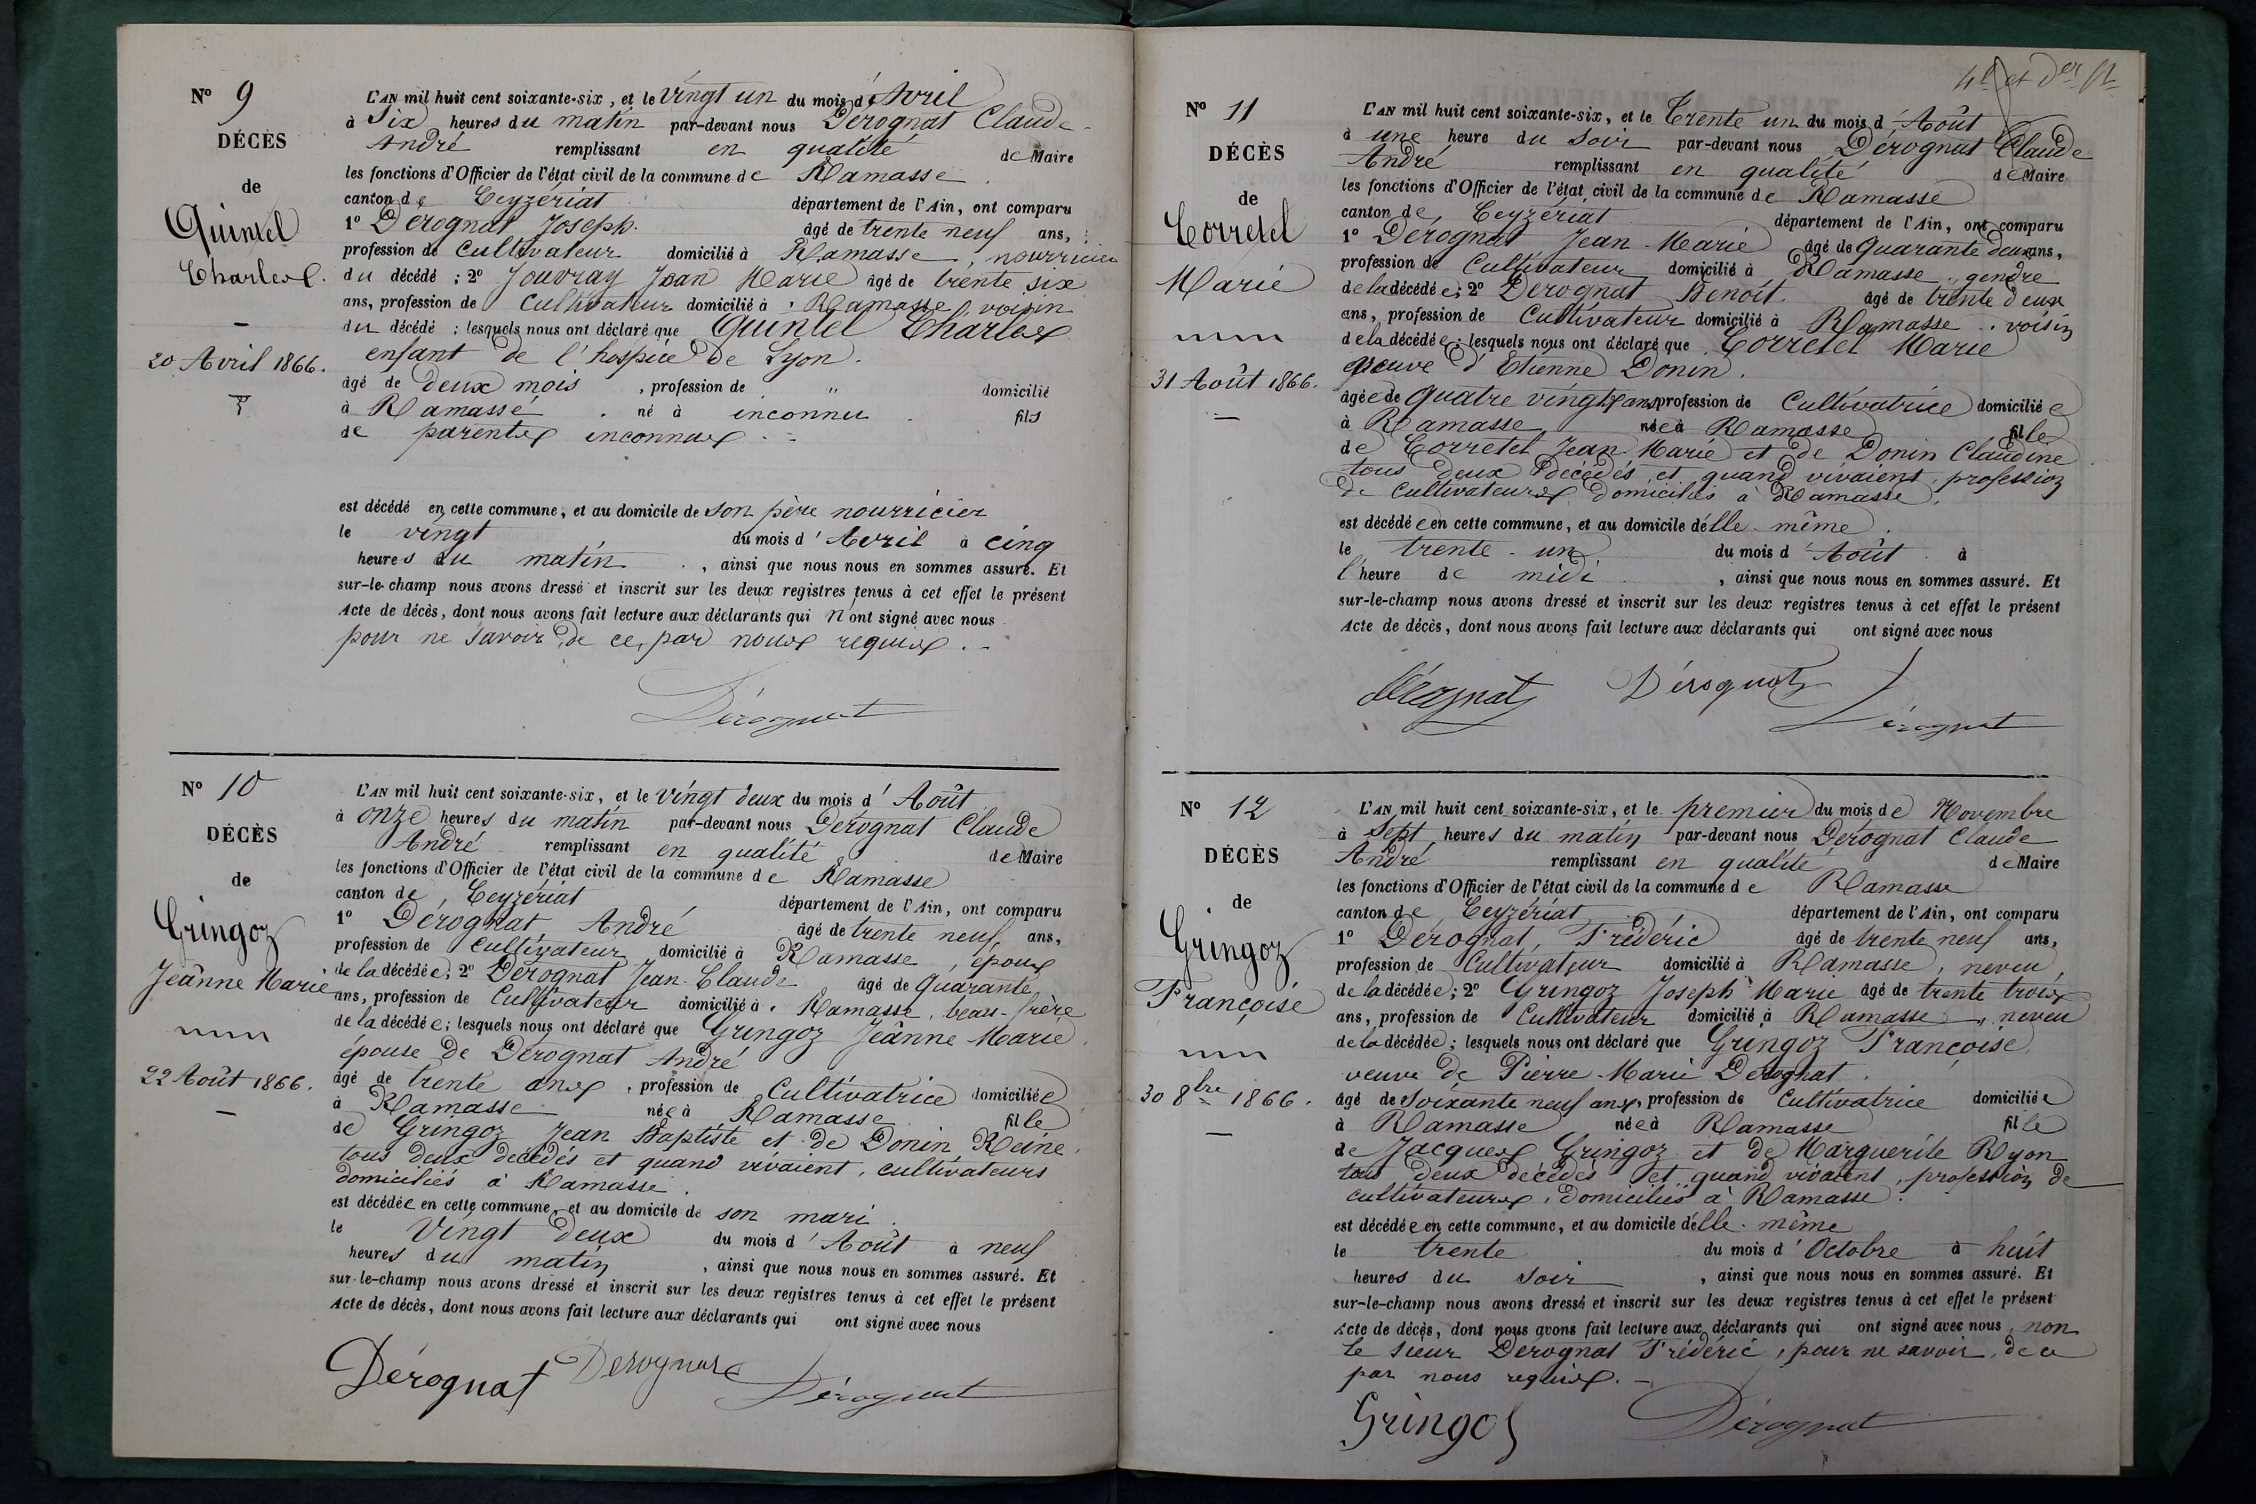 N° 9
DÉCÈS
de
Quintel
Charles.
20 Avril 1866.
L'AN mil huit cent soixante-six, et le vingt un du mois d'Avril
à Six heures du matin par-devant nous Dérognat Claude-
André remplissant en qualité de Maire
les fonctions d'Officier de l'état civil de la commune de Ramasse
canton de Ceyzériat département de l'Ain, ont comparu
1° Dérognat Joseph. âgé de trente neuf ans,
profession de Cultivateur domicilié à Ramasse, nourricier
du décédé ; 2° Jouvray Jean Marie âgé de trente six
ans, profession de Cultivateur domicilié à Ramasse, voisin
du décédé ; lesquels nous ont déclaré que Quintel Charles
enfant de l'hospice de Lyon.
âgé de deux mois, profession de " domicilié
à Ramasse. né à inconnu fils
de parents inconnus.
est décédé en cette commune, et au domicile de son père nourricier
le vingt du mois d'Avril à cinq
heures du matin, ainsi que nous nous en sommes assuré. Et
sur-le-champ nous avons dressé et inscrit sur les deux registres tenus à cet effet le présent
Acte de décès, dont nous avons fait lecture aux déclarants qui n'ont signé avec nous
pour ne savoir de ce, par nous requis.
Dérognat
N° 10
DÉCÈS
de
Gringoz
Jeanne Marie
22 Août 1866.
L'AN mil huit cent soixante-six, et le vingt deux du mois d'Août
à onze heures du matin par-devant nous Dérognat Claude
André remplissant en qualité de Maire
les fonctions d'Officier de l'état civil de la commune de Ramasse
canton de Ceyzériat département de l'Ain, ont comparu
1° Dérognat, André âgé de trente neuf ans,
profession de cultivateur domicilié à Ramasse, époux
de la décédée ; 2° Dérognat Jean-Claude âgé de quarante
ans, profession de Cultivateur domicilié à Ramasse, beau-frère
de la décédée ; lesquels nous ont déclaré que Gringoz Jeanne Marie
épouse de Dérognat André
âgé de trente ans, profession de Cultivatrice domiciliée
à Ramasse née à Ramasse fille
de Gringoz Jean Baptiste et de Donin Reine,
tous deux décédés et quand vivaient, cultivateurs
domiciliés à Ramasse.
est décédée en cette commune, et au domicile de son mari
le Vingt deux du mois d'Août à neuf
heures du matin, ainsi que nous nous en sommes assuré. Et
sur-le-champ nous avons dressé et inscrit sur les deux registres tenus à cet effet le présent
Acte de décès, dont nous avons fait lecture aux déclarants qui ont signé avec nous
Dérognat Derognat Dérognat
N° 11
DÉCÈS
de
Corretel
Marie
31 Août 1866.
L'AN mil huit cent soixante-six, et le Trente un du mois d'Août
à une heure du soir par-devant nous Dérognat Claude
André remplissant en qualité de Maire
les fonctions d'Officier de l'état civil de la commune de Ramasse
canton de Ceyzériat département de l'Ain, ont comparu
1° Dérognat Jean-Marie âgé de quarante deux ans,
profession de Cultivateur domicilié à Ramasse, gendre
de la décédée ; 2° Derognat Benoît. âgé de trente deux
ans, profession de Cultivateur domicilié à Ramasse. voisin
de la décédée ; lesquels nous ont déclaré que Corretel Marie
veuve d'Etienne Donin.
âgée de quatre vingts ans profession de Cultivatrice domiciliée
à Ramasse née à Ramasse fille
de Corretel Jean Marie et de Donin Claudine
tous deux décédés et quand vivaient, profession
de cultivateurs domiciliés à Ramasse.
est décédée en cette commune, et au domicile d'elle-même.
le trente-un du mois d'Août à
l'heure de midi, ainsi que nous nous en sommes assuré. Et
sur-le-champ nous avons dressé et inscrit sur les deux registres tenus à cet effet le présent
Acte de décès, dont nous avons fait lecture aux déclarants qui ont signé avec nous
Dérognat Dérognat Dérognat
N° 12
DÉCÈS
de
Gringoz
Françoise
30 8bre 1866.
L'AN mil huit cent soixante-six, et le premier du mois de Novembre
à sept heures du matin par-devant nous Dérognat Claude
André remplissant en qualité de Maire
les fonctions d'Officier de l'état civil de la commune de Ramasse
canton de Ceyzériat département de l'Ain, ont comparu
1° Derognat, Frédéric âgé de trente neuf ans,
profession de Cultivateur domicilié à Ramasse, neveu
de la décédée ; 2° Gringoz Joseph Marie âgé de trente trois
ans, profession de Cultivateur domicilié à Ramasse, neveu
de la décédée ; lesquels nous ont déclaré que Gringoz Françoise
veuve de Pierre-Marie Derognat.
âgé de soixante neuf ans, profession de Cultivatrice domiciliée
à Ramasse née à Ramasse fille
de Jacques Gringoz et de Marguerite Ryon
tous deux décédés et quand vivaient, profession de
cultivateurs, domiciliés à Ramasse.
est décédée en cette commune, et au domicile d'elle-même
le trente du mois d'Octobre à huit
heures du soir, ainsi que nous nous en sommes assuré. Et
sur-le-champ nous avons dressé et inscrit sur les deux registres tenus à cet effet le présent
Acte de décès, dont nous avons fait lecture aux déclarants qui ont signé avec nous, non
le sieur Derognat Frédéric, pour ne savoir, de ce
par nous requis.
Gringoz Dérognat